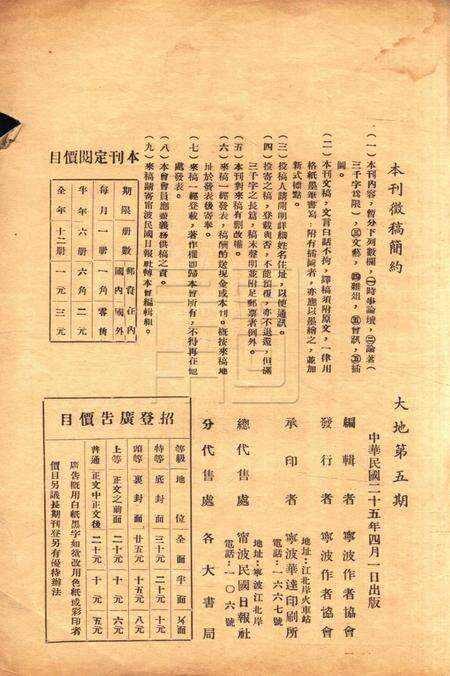 本刊徵稿簡約
（一）本刊內容，暫分下列數欄，㊀時事論壇，㊁論著（
三千字爲限），㊂文藝，㊃雜俎，㊄會訊，㊅插
圖。
（二）本刊文稿，文言白話不拘，譯稿須附原文，一律用
格紙墨筆書寫，附有插圖者，亦應以墨繪之，並加
新式標點。
（三）投稿人請開明詳細姓名住址，以便通訊。
（四）投寄之稿，登載與否，不能預覆，亦不退還，但滿
三千字之長篇，稿末聲明並附足郵票者例外。
（五）本刊對來稿有刪改權。
（六）來稿一經登載，稿酬酌送現金或本刊。概按來稿地
址於發表後寄奉。
（七）來稿一經登載，著作權卽歸本會所有，不得再在他
處發表。
（八）本會會員應盡義務供稿之責。
（九）來稿請寄甯波民國日報社轉本會編輯組。
本刊定閱價目
期限 册數 郵資在內 國內 國外
每月 一册 一角 零售
半年 六册 六角 二元
全年 十二册 一元 三元
大地第五期
中華民國二十五年四月一日出版
編輯者 寧波作者協會
發行者 寧波作者協會
承印者 寧波華達印刷所
地址：江北岸火車站
電話：一六六七號
總代售處 甯波民國日報社
地址：寧波江北岸
電話：一〇六號
分代售處 各大書局
招登廣告價目
等級 地位 全面 半面 ¼面
特等 底封面 三十元 二十元 十元
頭等 裏封面 廿五元 十五元 八元
上等 正文之前面 二十元 十元 六元
普通 正文中正文後 二十元 十元 五元
廣告概用白紙黑字如欲改用色紙或彩印者
價目另議長期刊登另有優待辦法